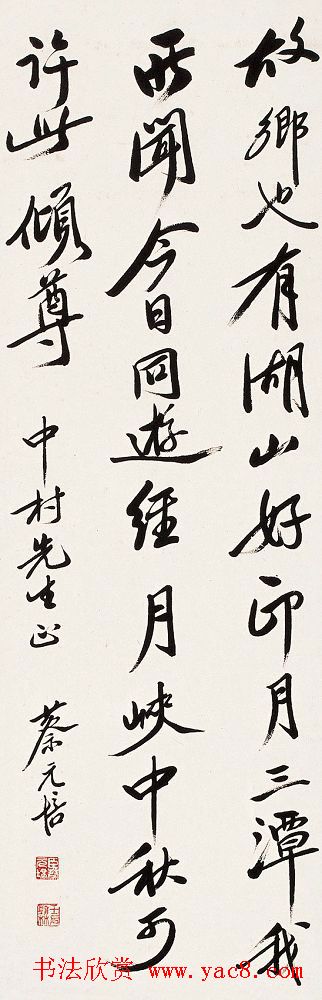 故鄉也有湖山好印月三潭我
所聞今日同遊經月峽中秋可
許此傾尊
中村先生正
蔡元培
书法欣赏 www.yac8.com